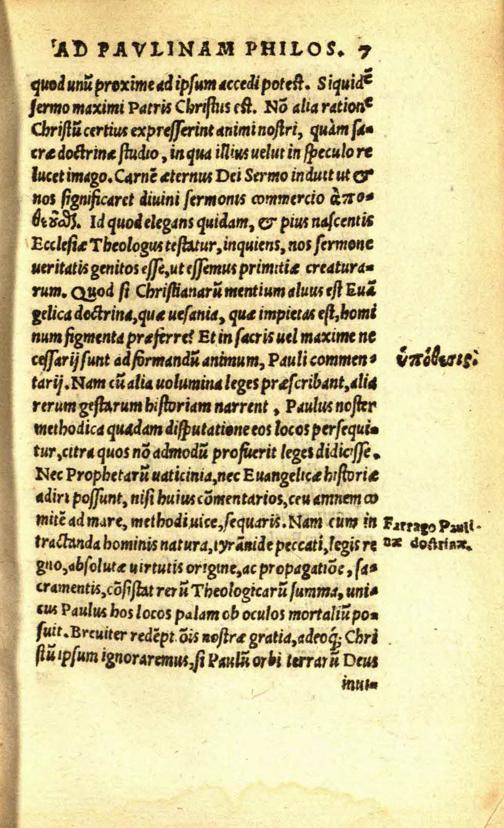 AD PAVLINAM PHILOS. 7
quod unũ proxime ad ipsum accedi potest. Siquidẽ
sermo maximi Patris Christus est. Nõ alia ratione
Christũ certius expresserint animi nostri, quàm sa=
cræ doctrinæ studio, in qua illius uelut in speculo re
lucet imago. Carnẽ æternus Dei Sermo induit ut &
nos significaret diuini sermonis commercio
Id quod elegans quidam, & pius nascentis
Ecclesiæ Theologus testatur, inquiens, nos sermone
ueritatis genitos esse, ut essemus primitiæ creatura=
rum. Quod si Christianarũ mentium aluus est Euã
gelica doctrina, quæ uesania, quæ impietas est, homi
num figmenta præferre? Et in sacris uel maxime ne
cessarij sunt ad formandũ animum, Pauli commen=
tarij. Nam cũ alia uolumina leges præscribant, alia
rerum gestarum historiam narrent, Paulus noster
methodica quadam disputatione eos locos persequi=
tur, citra quos nõ admodũ profuerit leges didicisse.
Nec Prophetarũ uaticinia, nec Euangelicæ historiæ
adiri possunt, nisi huius cõmentarios, ceu amnem co
mitẽ ad mare, methodi uice, sequaris. Nam cum in
tractanda hominis natura, tyrãnide peccati, legis re
gno, absolutæ uirtutis origine, ac propagatiõe, sa=
cramentis, cõsistat rerũ Theologicarũ summa, uni=
cus Paulus hos locos palam ob oculos mortaliũ po=
suit. Breuiter redẽpt. õis nostræ gratia, adeoq́; Chri
stũ ipsum ignoraremus, si Paulũ orbi terrarũ Deus
inui=
ὑπόθεσις.
Farrago Pauli-
næ doctrinæ.